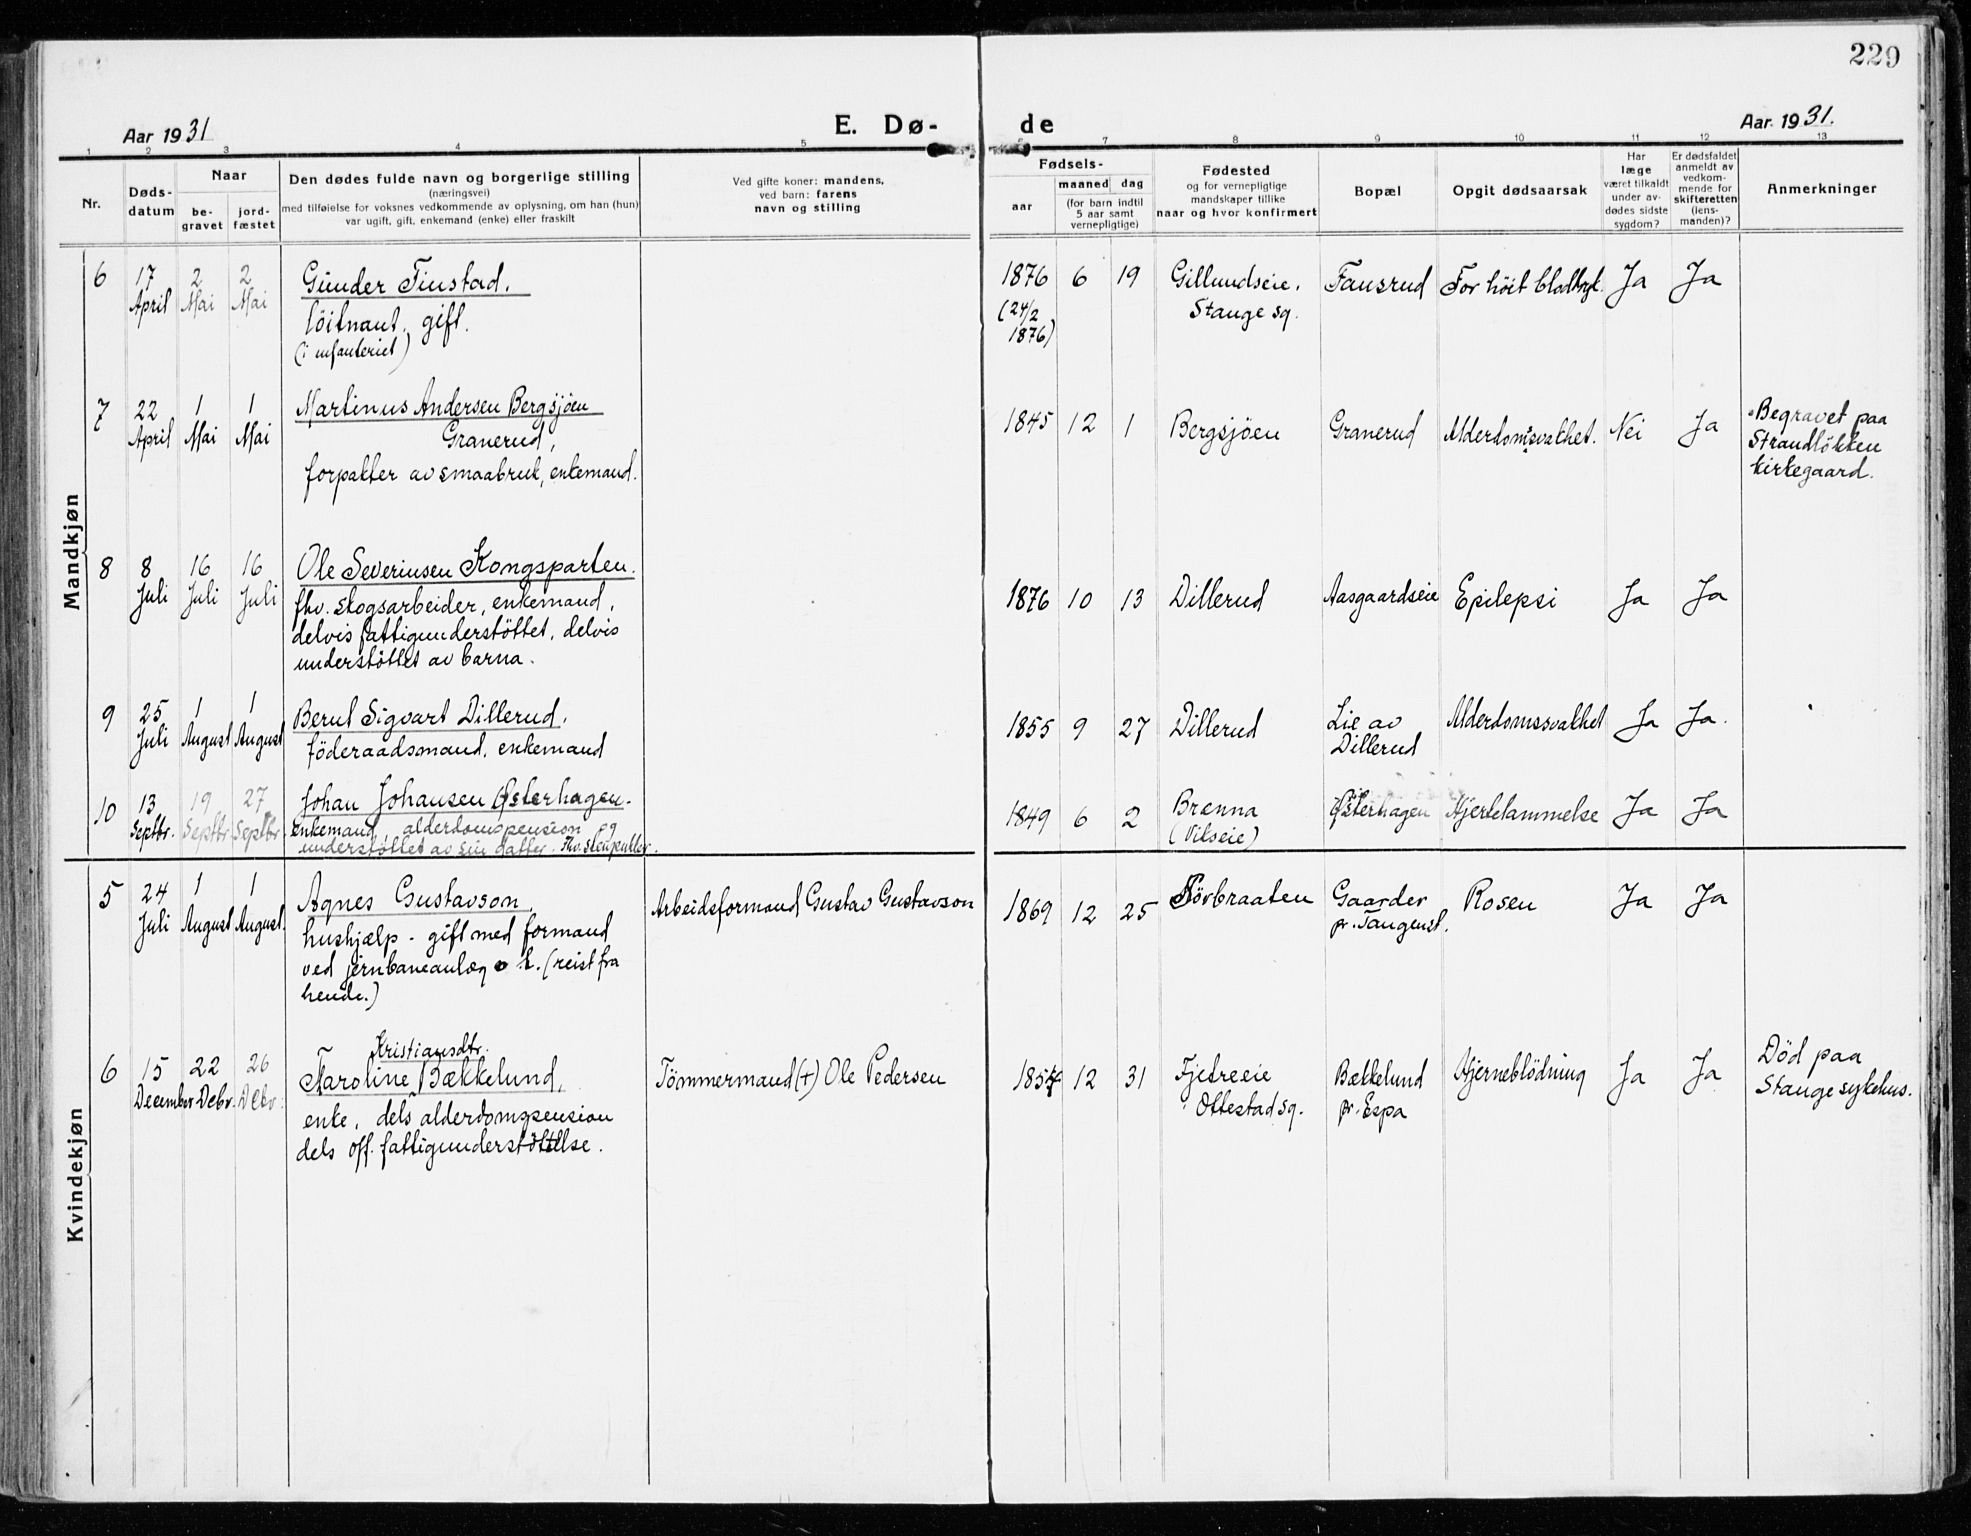 229
Aar 1931
E. Dø-
de
Aar 1931.
1 2 3 4 5 6 7 8 9 10 11 12 13
Nr.
Døds-
datum
Naar
be-
gravet
jord-
fæstet
Den dødes fulde navn og borgerlige stilling
(næringsvei)
med tilføielse for voksnes vedkommende av oplysning, om han (hun)
var ugift, gift, enkemand (enke) eller fraskilt
Ved gifte koner: mandens,
ved barn: farens
navn og stilling
Fødsels-
aar
maaned dag
(for barn indtil
5 aar samt
vernepligtige)
Fødested
og for vernepligtige
mandskaper tillike
naar og hvor konfirmert
Bopæl
Opgit dødsaarsak
Har
læge
været tilkaldt
under av-
dødes sidste
sygdom?
Er dødsfaldet
anmeldt av
vedkom-
mende for
skifteretten
(lens-
manden)?
Anmerkninger
Mandkjøn
6 17 2 2 Gunder Finstad. 1876 6 19 Gillundseie, Fausrud For høit blodtryk. Ja Ja
April Mai Mai löitnant. gift. (24/2 Stange sg.
(i infanteriet) 1876)
7 22 1 1 Martinus Andersen Bergsjöen 1845 12 1 Bergsjöen Granerud Alderdomsvakhet. Nei Ja Begravet paa
April Mai Mai Granerud, Strandløkken
forpakter av smaabruk, enkemand. kirkegaard.
8 8 16 16 Ole Severinsen Kongsparten. 1876 10 13 Dillerud Aasgaardseie Epilepsi Ja Ja
Juli Juli Juli fhv. skogsarbeider, enkemand,
delvis fattigunderstöttet, delvis
understöttet av barna.
9 25 1 1 Bernt Sigvart Dillerud, 1855 9 27 Dillerud Lie av Alderdomssvakhet Ja Ja.
Juli August August föderaadsmand, enkemand Dillerud
10 13 19 27 Johan Johansen Østerhagen. 1849 6 2 Brenna Østerhagen Hjertelammelse Ja Ja
Septbr. Septbr Septbr enkemand, alderdomspension og (Vikseie)
understöttet av sin datter. Fhv. stenpukker.
Kvindekjøn
5 24 1 1 Agnes Gustavson, Arbeidsformand Gustav Gustavson 1869 12 25 Sörbraaten Gaarder Rosen Ja Ja
Juli August August. hushjælp - gift med formand pr. Tangenst.
ved jernbaneanlæg o l. (reist fra
hende.)
Kristiansdtr.
6 15 22 26 Karoline Bækkelund, Tömmermand (+) Ole Pedersen 12 31 Fjetreeie Bækkelund Hjerneblödning Ja Ja Död paa
December Debr. Debr. enke, dels alderdomspension Ottestad sg. pr. Espa Stange sykehus.
dels off. fattigunderstöttelse.